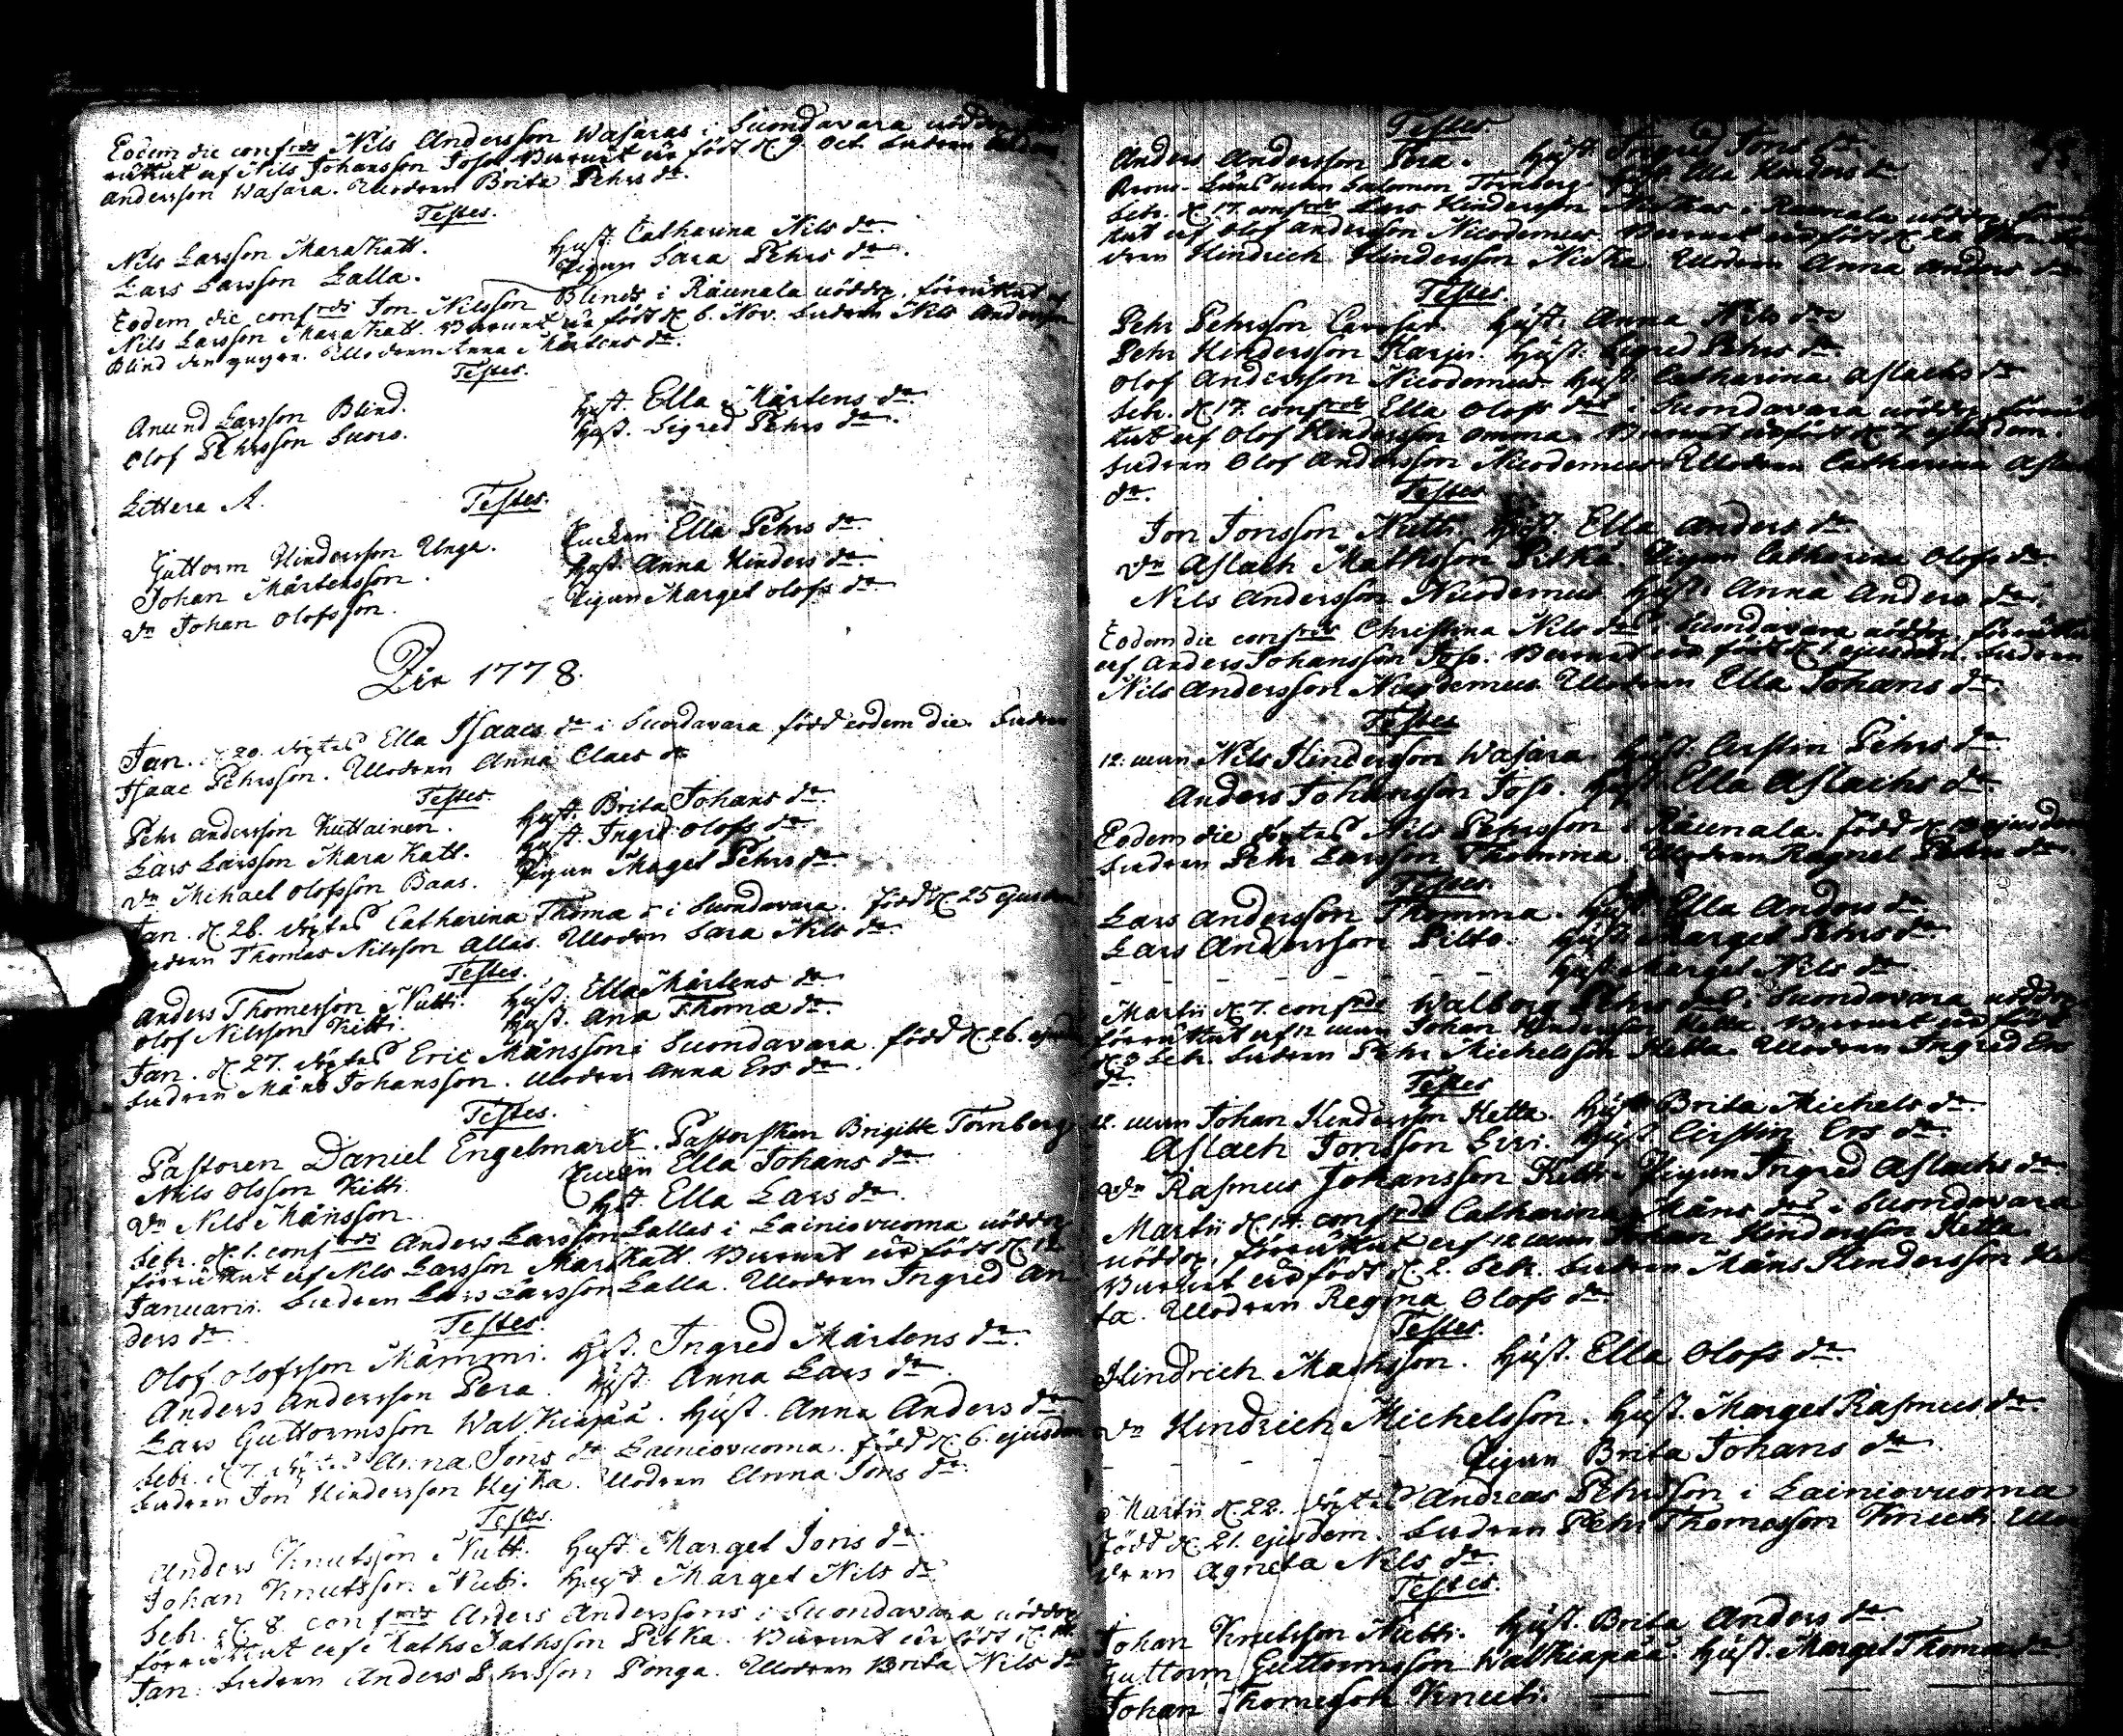 Eodem die confrds Nils Andersson Wasaras i Suondavara nöddop
rättat af Nils Johansson Joso. Barnet är född d. 9 Oct. Fadren
Andersson Wasara. Modren Brita Pehrs dr.
Testes.
Nils Larsson Marakatt. Hust. Catharina Nils dr.
Lars Larsson Lalla. Pigan Sara Pehrs dr.
Eodem die confrds Jon Nilsson Blinds i Råunala nöddop, förrättat af
Nils Larsson Marakatt. Barnet är född d. 6. Nov. Fadren Nils Andersson
Blind den yngre. Modren Anna Mårtens dr.
Testes.
Anund Larsson Blind. Hust. Ella Mårtens dr.
Olof Pehrsson Suoro. Hust. Sigred Pehrs dr.
Littera A. Testes.
Guttorm Hindersson Unga. Enckan Ella Pehrs dr.
Johan Mårtensson. Hust. Anna Hinders dr.
Dn Johan Olofsson. Pigan Marget Olofs dr.
För 1778.
Jan. d. 20. döptes Ella Isaacs dr i Suondavara född eodem die. Fadren
Isaac Pehrsson. Modren Anna Claes dr
Testes.
Pehr Andersson Kuttainen. Hust. Brita Johans dr.
Lars Larsson Marakatt. Hust. Ingrid Olofs dr.
Dn Michael Olofsson Baas. Pigan Maget Pehrs dr.
Jan. d. 26. döptes Catharina Thomæ dr i Suondavara. född d. 25 ejusdem
Fadren Thomas Nilsson Allas. Modren Sara Nils dr.
Testes.
Anders Thomesson Nutti. Hust. Ella Mårtens dr.
Olof Nilsson Kitti. Hust. Ana Thomæ dr.
Jan. d. 27. döptes Eric Månsson i Suondavara. född d. 26. ejusdem
Fadren Måns Johansson. Modren Anna Ers dr.
Testes.
Pastoren Daniel Engelmarck. Pastorskan Brigitte Törnberg
Nils Olsson Kitti. Enckan Ella Johans dr.
Dn Nils Månsson. Hust. Ella Lars dr.
Febr. d. 1. confrds Anders Larsson Lallas i Lainiovuoma nöddop
förrättat af Nils Larsson Marakatt. Barnet är född d. 12
Januarii. Fadren Lars Larsson Lalla. Modren Ingred An
ders dr. Testes.
Olof Olofsson Mämmi. Hust. Ingred Mårtens dr.
Anders Andersson Pera. Hust. Anna Lars dr.
Lars Guttormsson Walkiapää. Hust. Anna Anders dr.
Febr. d. 7. döptes Anna Jons dr Lainiovuoma. född d. 6. ejusdem
Fadren Jon Hindersson Hejka. Modren Anna Jons dr.
Testes.
Anders Knutsson Nutti. Hust. Marget Jons dr.
Johan Knutsson Nuti. Hust. Marget Nils dr
Febr. d. 8. confrds Anders Anderssons i Suondavara nöddop
förrättat af Maths Mathsson Pitka. Barnet är född d.
Jan. Fadren Anders Pehrsson Ponga. Modren Brita Nils dr
Testes.
Anders Andersson Pera. Hust. Ingred Jons dr.
Krono-Länsman Salomon Törnberg. Hust. Ella Hinders dr
Febr. d. 17. confrds Lars Hindersson i Råunala nöddop, förrät
tat af Olof Andersson Nicodemus. Barnet är född d. Fa
dren Hindrich Hindersson Niska. Modren Anna Anders dr
Testes.
Pehr Pehrsson Hust. Anna Nils dr
Pehr Hindersson Harju. Hust. Sigred Pehrs dr.
Olof Andersson Nicodemus. Hust. Catharina Aslachs dr
Febr. d. 17. confrds Ella Olofs drs i Suondavara nöddop, förrät
tat af Olof Hindersson Omma. Barnet är född d. 7 ejusdem.
Fadren Olof Andersson Nicodemus. Modren Catharina Aslachs
dr. Testes
Jon Jonsson Nutti. Hust. Ella Anders dr
Dn Aslach Mathsson Pitka. Pigan Catharina Olofs dr.
Nils Andersson Nicodemus. Hust. Anna Anders dr.
Eodem die confrds Christina Nils drs i Suondavara nöddop, förrättat
af Anders Johansson Joso. Barnet är född d. 1. ejusdem. Fadren
Nils Andersson Nicodemus. Modren Ella Johans dr.
Testes
12. man Nils Hindersson Wasara. Hust. Cerstin Pehrs dr
Anders Johansson Joso. Hust. Ella Aslachs dr.
Eodem die döptes Nils Pehrsson i Råunala. född d. ejusdem
Fadren Pehr Larsson Thomma. Modren Ragnel Pehrs dr.
Testes.
Lars Andersson Thomma. Hust. Ella Anders dr
Lars Andersson Pilto. Hust. Marget Pehrs dr
Hust. Marget Nils dr.
Martii d. 7. confrds Walborg Pehrs drs i Suondavara nöddop,
förrättat af 12 man Johan Hindersson Hetta. Barnet är född
d. 9 Febr. Fadren Pehr Michelsson Hetta. Modren Ingred Ers
dr. Testes
12. man Johan Hindersson Hetta. Hust. Brita Michels dr.
Aslach Jonsson Hust. Cirstin Ers dr.
Dn Rasmus Johansson Kitti. Pigan Ingred Aslachs dr
Martii d. 14. confrds Catharina Måns drs i Suondavara
nöddop, förrättat af 12 man Johan Hindersson Hetta.
Barnet är född d. 2. Febr. Fadren Måns Hendersson Het
ta. Modren Regina Olofs dr.
Testes.
Hindrich Mathsson. Hust. Ella Olofs dr.
Dn Hindrich Michelsson. Hust. Marget Rasmus dr.
Pigan Brita Johans dr
Martii d. 22. döptes Andreas Pehrsson i Lainiovuoma
född d. 21. ejusdem. Fadren Pehr Thomesson Knuti. Mo
dren Agneta Nils dr.
Testes.
Johan Knutsson Nutti. Hust. Brita Anders dr
Guttorm Guttormsson Walkiapää. Hust. Marget Thomæ dr
Johan Thomesson Knuti.